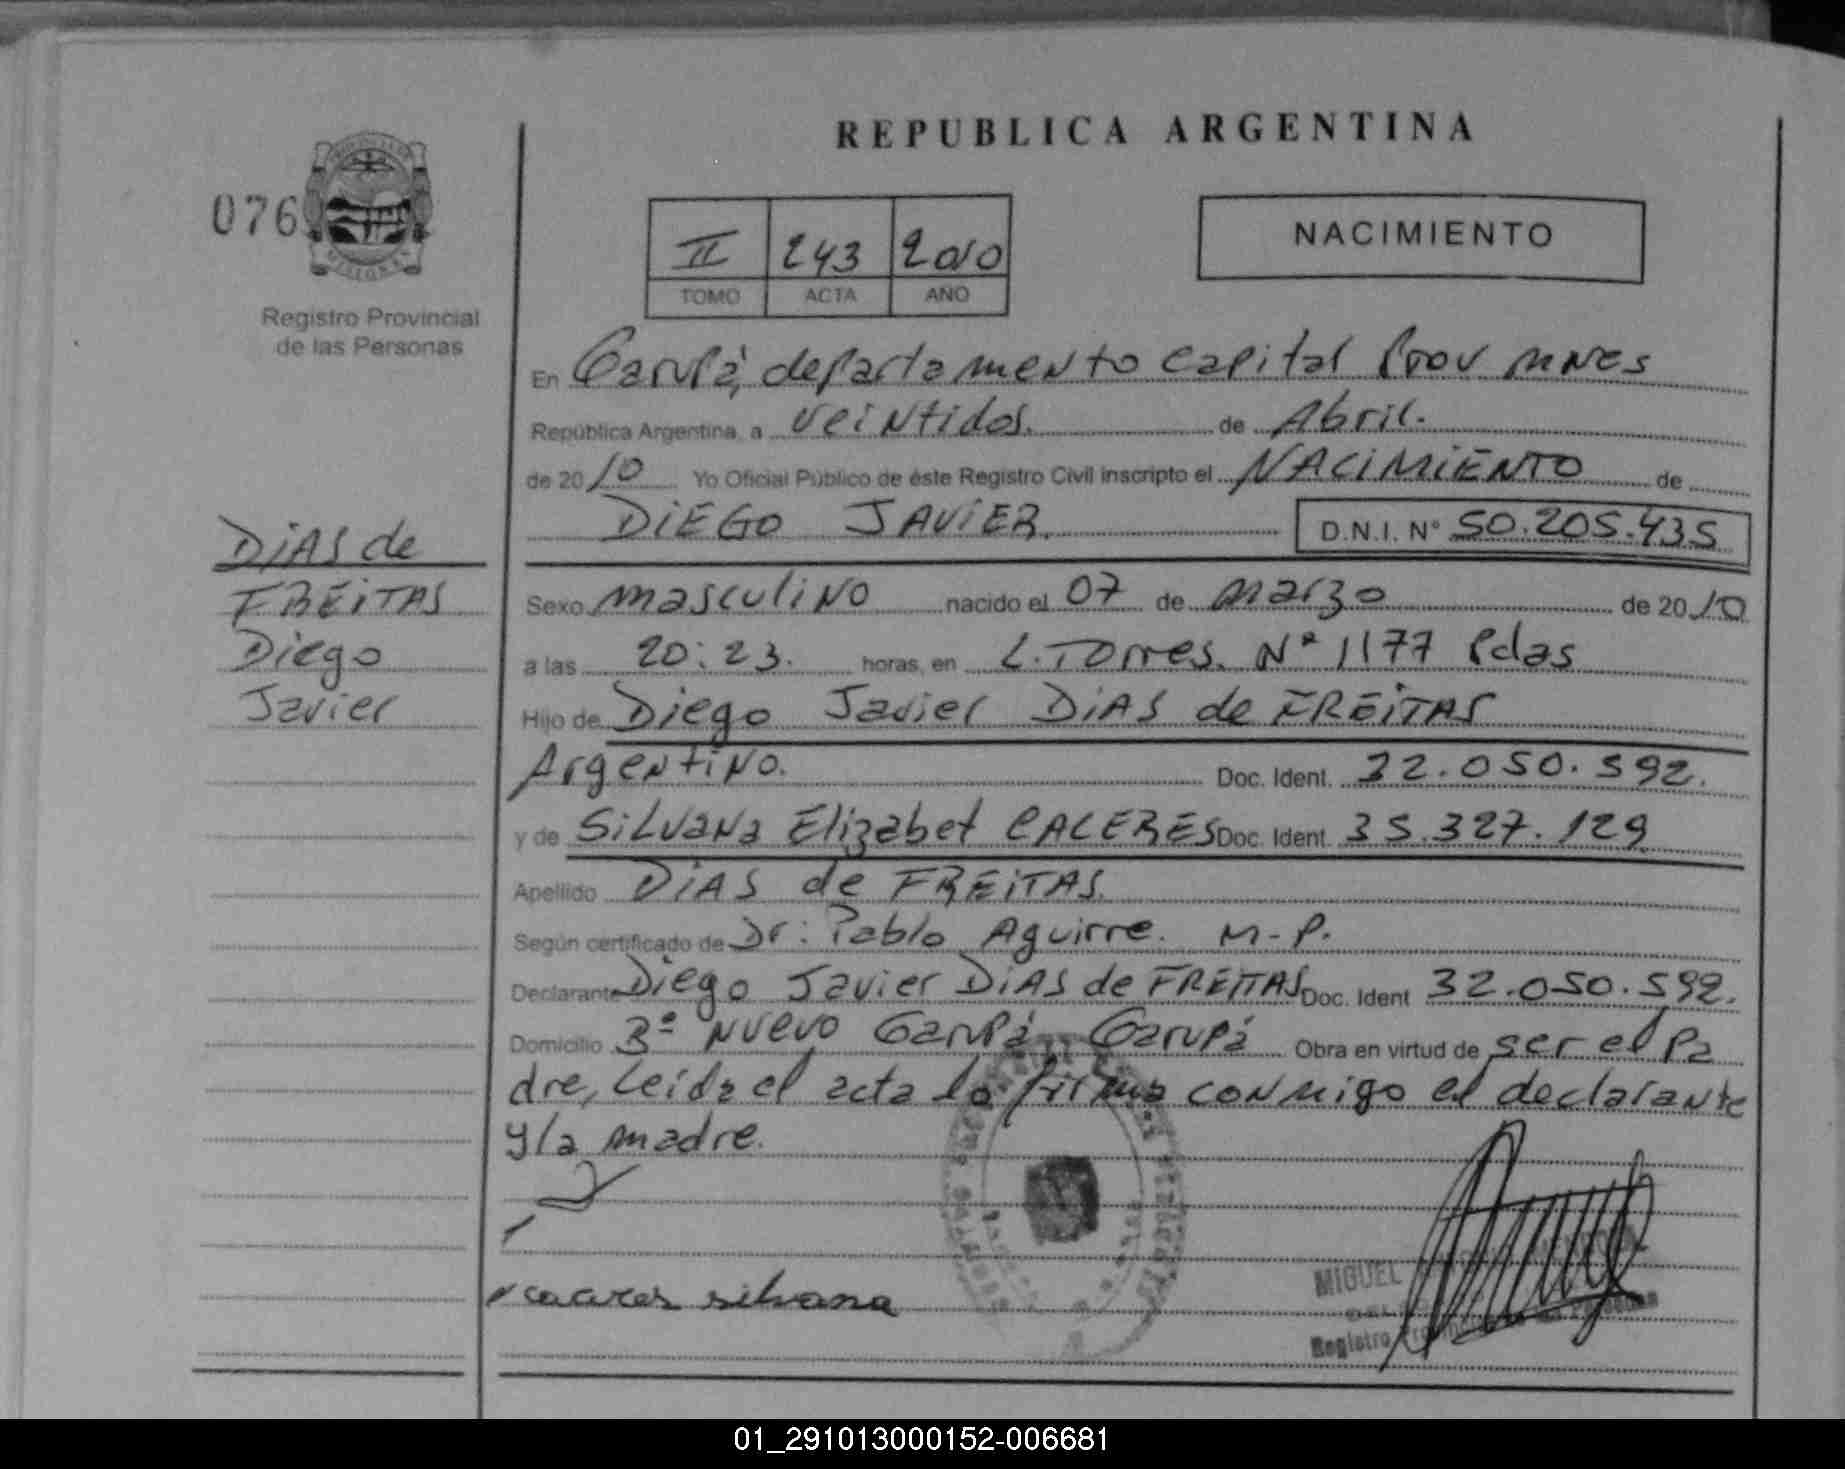 REPUBLICA ARGENTINA
076
MISIONES
Registro Provincial
de las Personas
II 243 2010
TOMO ACTA AÑO
NACIMIENTO
En Garupá, departamento Capital Prov mnes
República Argentina, a veintidos. de Abril.
de 2010 Yo Oficial Público de éste Registro Civil inscripto el NACIMIENTO de
DIEGO JAVIER. D.N.I. N° 50.205.435
DIAS de
FREITAS
Diego
Javier
Sexo masculino nacido el 07 de marzo de 2010
a las 20:23. horas, en L. Torres. N° 1177 Pdas
Hijo de Diego Javier DIAS de FREITAS
Argentino. Doc. Ident. 32.050.592.
y de Silvana Elizabet CACERES Doc. Ident. 35.327.129
Apellido DIAS de FREITAS.
Según certificado de Dr: Pablo Aguirre. M-P.
Declarante Diego Javier DIAS de FREITAS Doc. Ident 32.050.592.
Domicilio B° Nuevo Garupá, Garupá Obra en virtud de ser el pa
dre, leida el acta la firma conmigo el declarante
y la madre.
caceres silvana
MIGUEL
Registro Provincial de las Personas
01_291013000152-006681